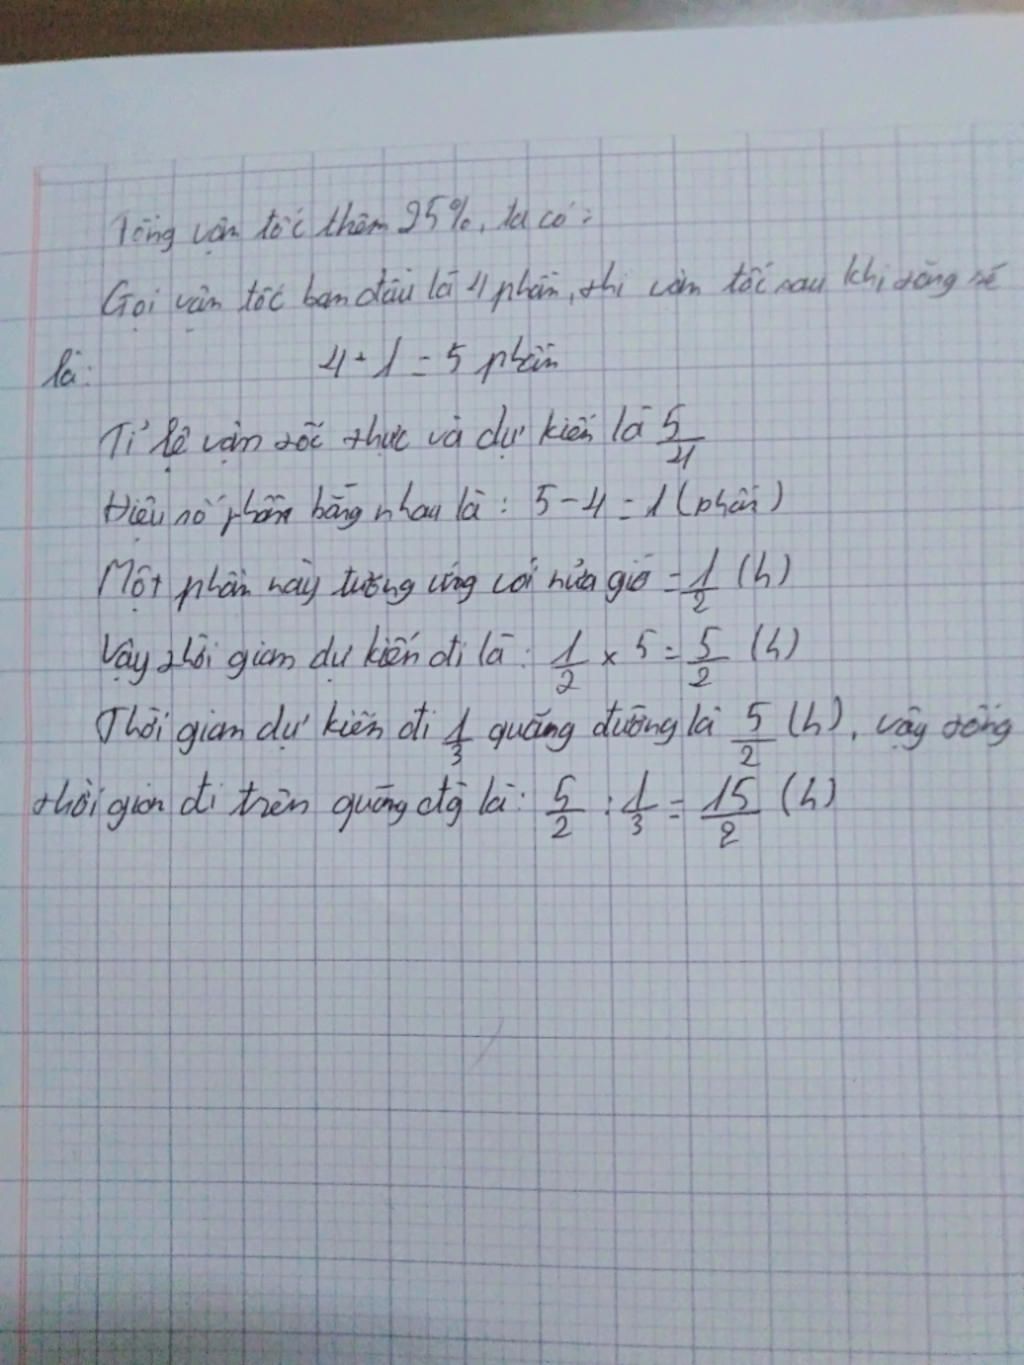 Tăng vận tốc thêm 25%, ta có:
Gọi vận tốc ban đầu là 4 phần, thì vận tốc sau khi tăng sẽ
là: 4 + 1 = 5 phần
Tỉ lệ vận tốc thực và dự kiến là 5/4
Hiệu số phần bằng nhau là: 5 - 4 = 1 (phần)
Một phần này tương ứng với nửa giờ = 1/2 (h)
Vậy thời gian dự kiến đi là: 1/2 × 5 = 5/2 (h)
Thời gian dự kiến đi 1/3 quãng đường là 5/2 (h), vậy tổng
thời gian đi trên quãng đg là: 5/2 : 1/3 = 15/2 (h)